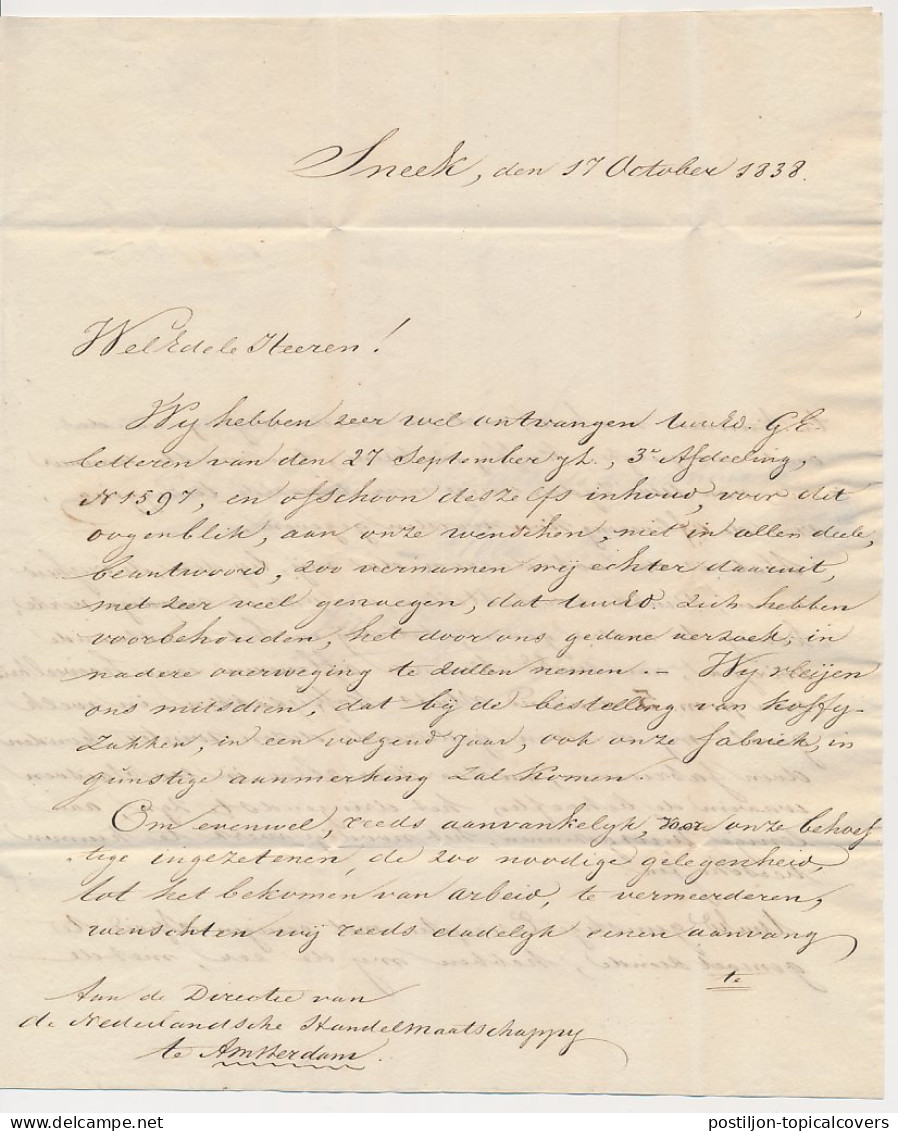 Sneek, den 17 October 1838.
WelEdele Heeren!
Wy hebben zeer wel ontvangen UwEd. G.E.
letteren van den 27 September jl., 3e Afdeeling,
N 1597, en ofschoon deszelfs inhoud, voor dit
oogenblik, aan onze wenschen, niet in allen deele,
beantwoord, zoo vernamen wij echter daaruit,
met zeer veel genoegen, dat UwEd. zich hebben
voorbehouden, het door ons gedane verzoek, in
nadere overweging te zullen nemen. – Wy vleijen
ons mitsdien, dat bij de bestelling van Koffy-
Zakken, in een volgend Jaar, ook onze fabriek, in
gunstige aanmerking zal komen.
Om evenwel, reeds aanvankelyk, voor onze behoef
tige ingezetenen, de zoo noodige gelegenheid,
tot het bekomen van arbeid, te vermeerderen,
wenschten wij reeds dadelyk eenen aanvang
te
Aan de Directie van
de Nederlandsche Handelmaatschappy
te Amsterdam.
postiljon-topicalcovers